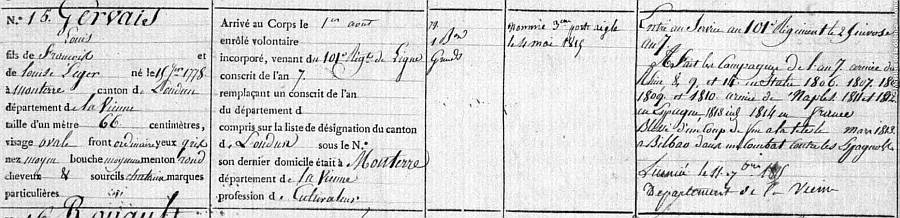 N.° 15. Gervais
Louis
fils de François et
de Louise Leger né le 15 1778
à Monterre canton de Loudun
département d la Vienne
taille d'un mètre 66 centimètres,
visage ovale front ordinaire yeux gris
nez moyen bouche moyenne menton rond
cheveux & sourcils chatain marques
particulières
Arrivé au Corps le 1er août
enrôlé volontaire
incorporé, venant du 101e Rég.t de Ligne
conscrit de l'an 7
remplaçant un conscrit de l'an
du département d
compris sur la liste de désignation du canton
d Loudun sous le N.°
son dernier domicile était à Monterre
département d la Vienne
profession d Cultivateur
1 Bon
Grends
nommé 3eme porte aigle
le 4 mai 1815
Entré au Service au 101e Régiment le 2 nivose
an 7.
A fait les Campagnes de l'an 7 armée du
Rhin 8, 9, et 14 en Italie 1806. 1807. 180
1809. et 1810. armée de Naples. 1811 et 1812
en Espagne 1813 1814 en france
Blessé d'un coup de feu a la tête le mars 1813.
a Bilbao dans un Combat contre les Espagnols
Licencié le 11 7bre 1815
Département de la Vienne
16 Rouault